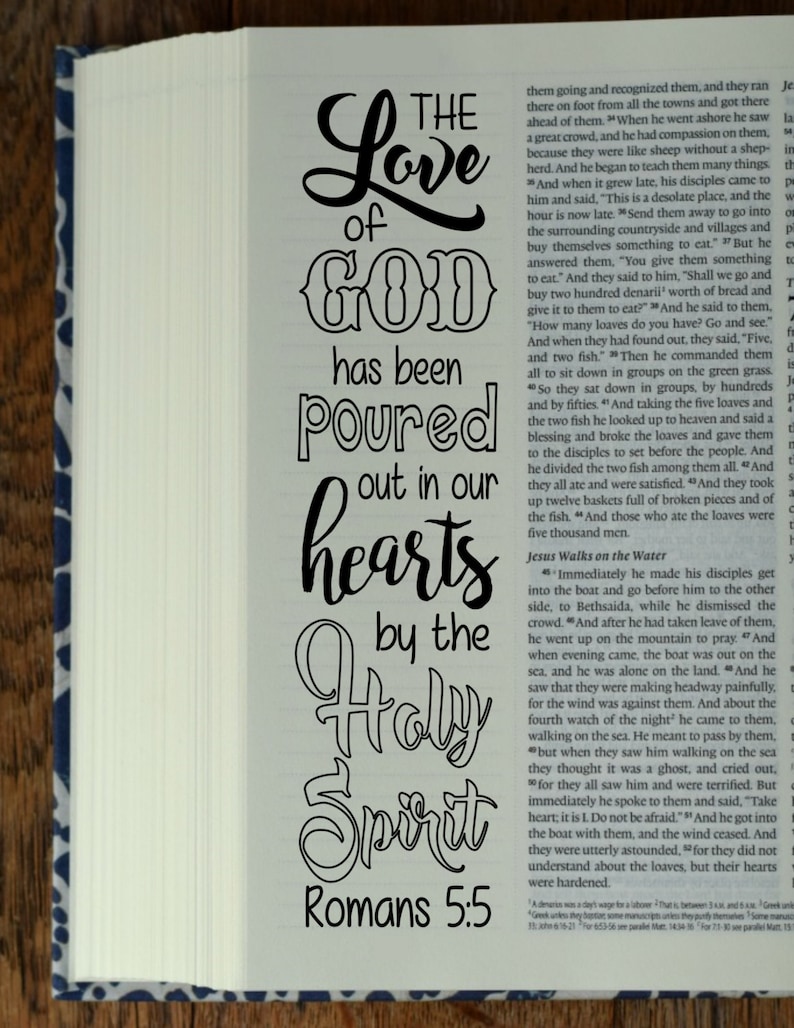 THE
Love
of
GOD
has been
poured
out in our
hearts
by the
Holy
Spirit
Romans 5:5
them going and recognized them, and they ran
there on foot from all the towns and got there
ahead of them. 34 When he went ashore he saw
a great crowd, and he had compassion on them,
because they were like sheep without a shep-
herd. And he began to teach them many things.
35 And when it grew late, his disciples came to
him and said, “This is a desolate place, and the
hour is now late. 36 Send them away to go into
the surrounding countryside and villages and
buy themselves something to eat.” 37 But he
answered them, “You give them something
to eat.” And they said to him, “Shall we go and
buy two hundred denarii1 worth of bread and
give it to them to eat?” 38 And he said to them,
“How many loaves do you have? Go and see.”
And when they had found out, they said, “Five,
and two fish.” 39 Then he commanded them
all to sit down in groups on the green grass.
40 So they sat down in groups, by hundreds
and by fifties. 41 And taking the five loaves and
the two fish he looked up to heaven and said a
blessing and broke the loaves and gave them
to the disciples to set before the people. And
he divided the two fish among them all. 42 And
they all ate and were satisfied. 43 And they took
up twelve baskets full of broken pieces and of
the fish. 44 And those who ate the loaves were
five thousand men.
Jesus Walks on the Water
45 Immediately he made his disciples get
into the boat and go before him to the other
side, to Bethsaida, while he dismissed the
crowd. 46 And after he had taken leave of them,
he went up on the mountain to pray. 47 And
when evening came, the boat was out on the
sea, and he was alone on the land. 48 And he
saw that they were making headway painfully,
for the wind was against them. And about the
fourth watch of the night2 he came to them,
walking on the sea. He meant to pass by them,
49 but when they saw him walking on the sea
they thought it was a ghost, and cried out,
50 for they all saw him and were terrified. But
immediately he spoke to them and said, “Take
heart; it is I. Do not be afraid.” 51 And he got into
the boat with them, and the wind ceased. And
they were utterly astounded, 52 for they did not
understand about the loaves, but their hearts
were hardened.
1 A denarius was a day's wage for a laborer 2 That is, between 3 A.M. and 6 A.M. 3 Greek
4 Greek unless they baptize; some manuscripts unless they purify themselves 5 Some
13; John 6:16-21 For 6:53-56 see parallel Matt. 14:34-36 For 7:1-30 see parallel Matt.